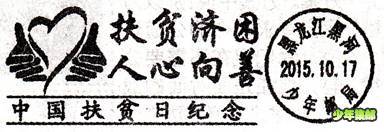 扶贫济困
人心向善
中国扶贫日纪念
黑龙江黑河
2015.10.17
少年邮局
少年集邮